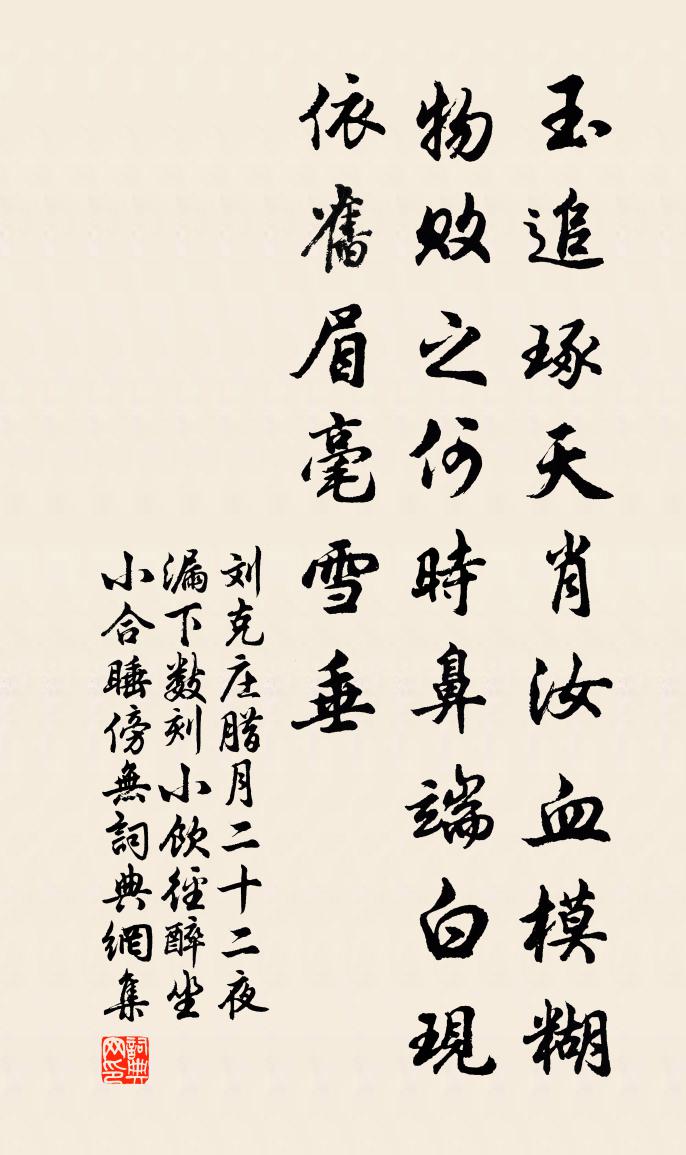 玉追琢天肖汝血模糊
物败之何時鼻端白現
依舊眉毫雪垂
刘克庄腊月二十二夜
漏下数刻小飲徑醉坐
小合睡傍無詞典網集
詞典网印